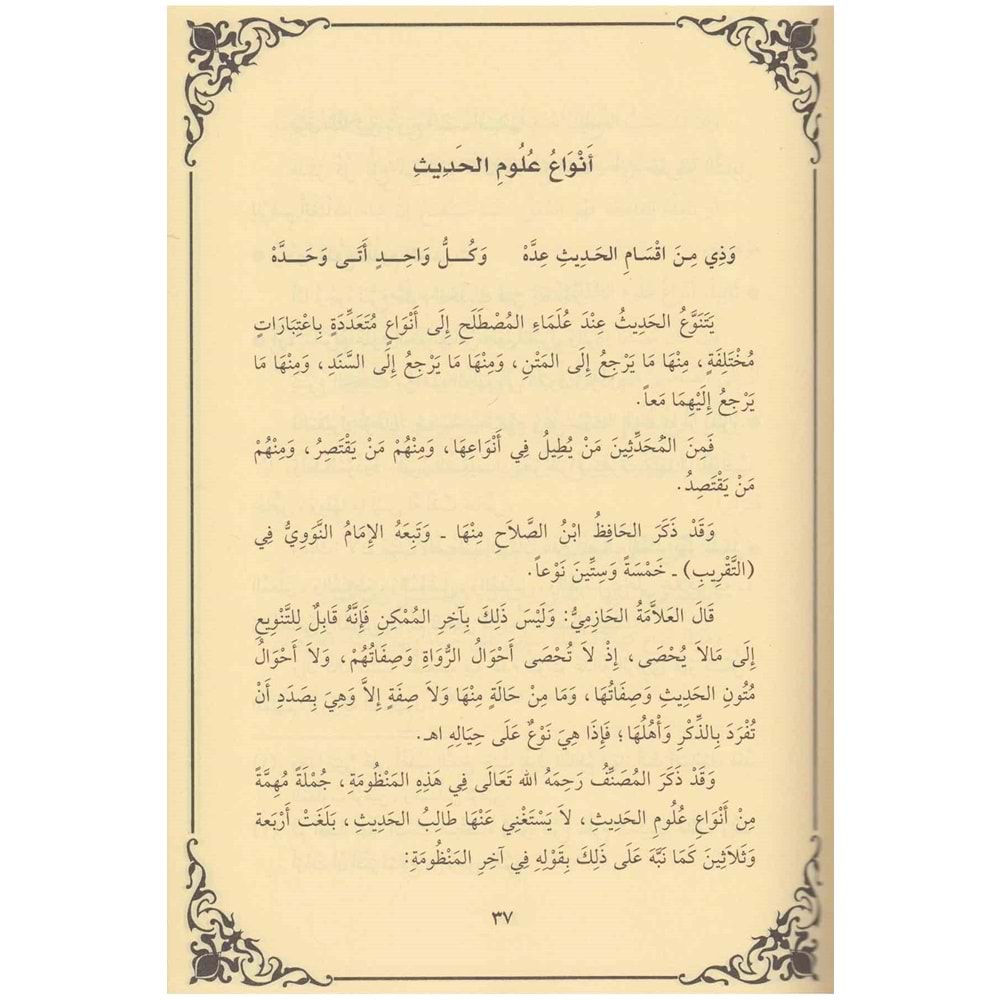 أَنْوَاعُ عُلُومِ الحَدِيثِ
وَذِي مِنَ اقْسَامِ الحَدِيثِ عِدَّهْ وَكُـــلُّ وَاحِـــدٍ أَتَـــى وَحَـــدَّهْ
يَتَنَوَّعُ الحَدِيثُ عِنْدَ عُلَمَاءِ المُصْطَلَحِ إِلَى أَنْوَاعٍ مُتَعَدِّدَةٍ بِاعْتِبَارَاتٍ
مُخْتَلِفَةٍ، مِنْهَا مَا يَرْجِعُ إِلَى المَتْنِ، وَمِنْهَا مَا يَرْجِعُ إِلَى السَّنَدِ، وَمِنْهَا مَا
يَرْجِعُ إِلَيْهِمَا مَعاً.
فَمِنَ المُحَدِّثِينَ مَنْ يُطِيلُ فِي أَنْوَاعِهَا، وَمِنْهُمْ مَنْ يَقْتَصِرُ، وَمِنْهُمْ
مَنْ يَقْتَصِدُ.
وَقَدْ ذَكَرَ الحَافِظُ ابْنُ الصَّلَاحِ مِنْهَا ـ وَتَبِعَهُ الإِمَامُ النَّوَوِيُّ فِي
(التَّقْرِيبِ) ـ خَمْسَةً وَسِتِّينَ نَوْعاً.
قَالَ العَلاَّمَةُ الحَازِمِيُّ: وَلَيْسَ ذَلِكَ بِآخِرِ المُمْكِنِ فَإِنَّهُ قَابِلٌ لِلتَّنْوِيعِ
إِلَى مَالاَ يُحْصَى، إِذْ لاَ تُحْصَى أَحْوَالُ الرُّوَاةِ وَصِفَاتُهُمْ، وَلاَ أَحْوَالُ
مُتُونِ الحَدِيثِ وَصِفَاتُهَا، وَمَا مِنْ حَالَةٍ مِنْهَا وَلاَ صِفَةٍ إِلاَّ وَهِيَ بِصَدَدِ أَنْ
تُفْرَدَ بِالذِّكْرِ وَأَهْلُهَا؛ فَإِذَا هِيَ نَوْعٌ عَلَى حِيَالِهِ اهـ.
وَقَدْ ذَكَرَ المُصَنِّفُ رَحِمَهُ الله تَعَالَى فِي هَذِهِ المَنْظُومَةِ، جُمْلَةً مُهِمَّةً
مِنْ أَنْوَاعِ عُلُومِ الحَدِيثِ، لاَ يَسْتَغْنِي عَنْهَا طَالِبُ الحَدِيثِ، بَلَغَتْ أَرْبَعة
وَثَلاَثِينَ كَمَا نَبَّهَ عَلَى ذَلِكَ بِقَوْلِهِ فِي آخِرِ المَنْظُومَةِ:
٣٧